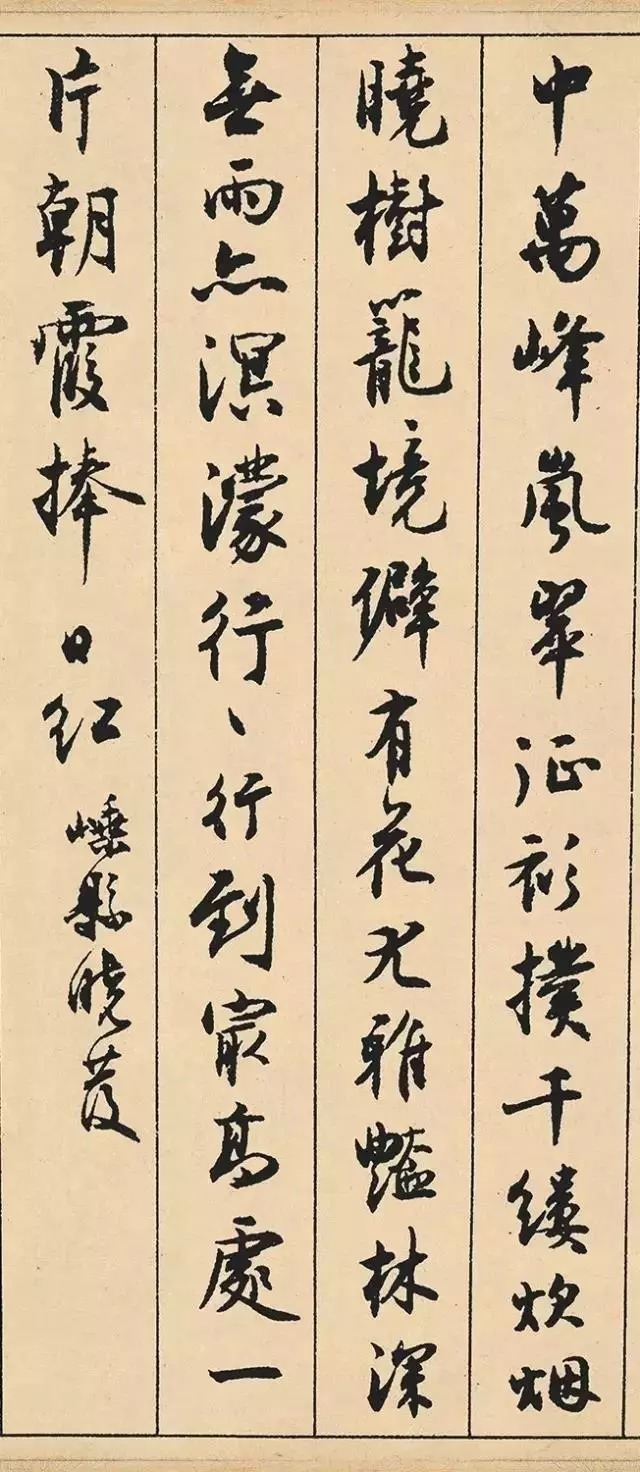 中萬峰嵐翠征衫撲千縷炊烟
曉樹籠境僻有花尤雅豔林深
無雨亦溟濛行〻行到寂高處一
片朝霞捧日紅 嵊縣曉發